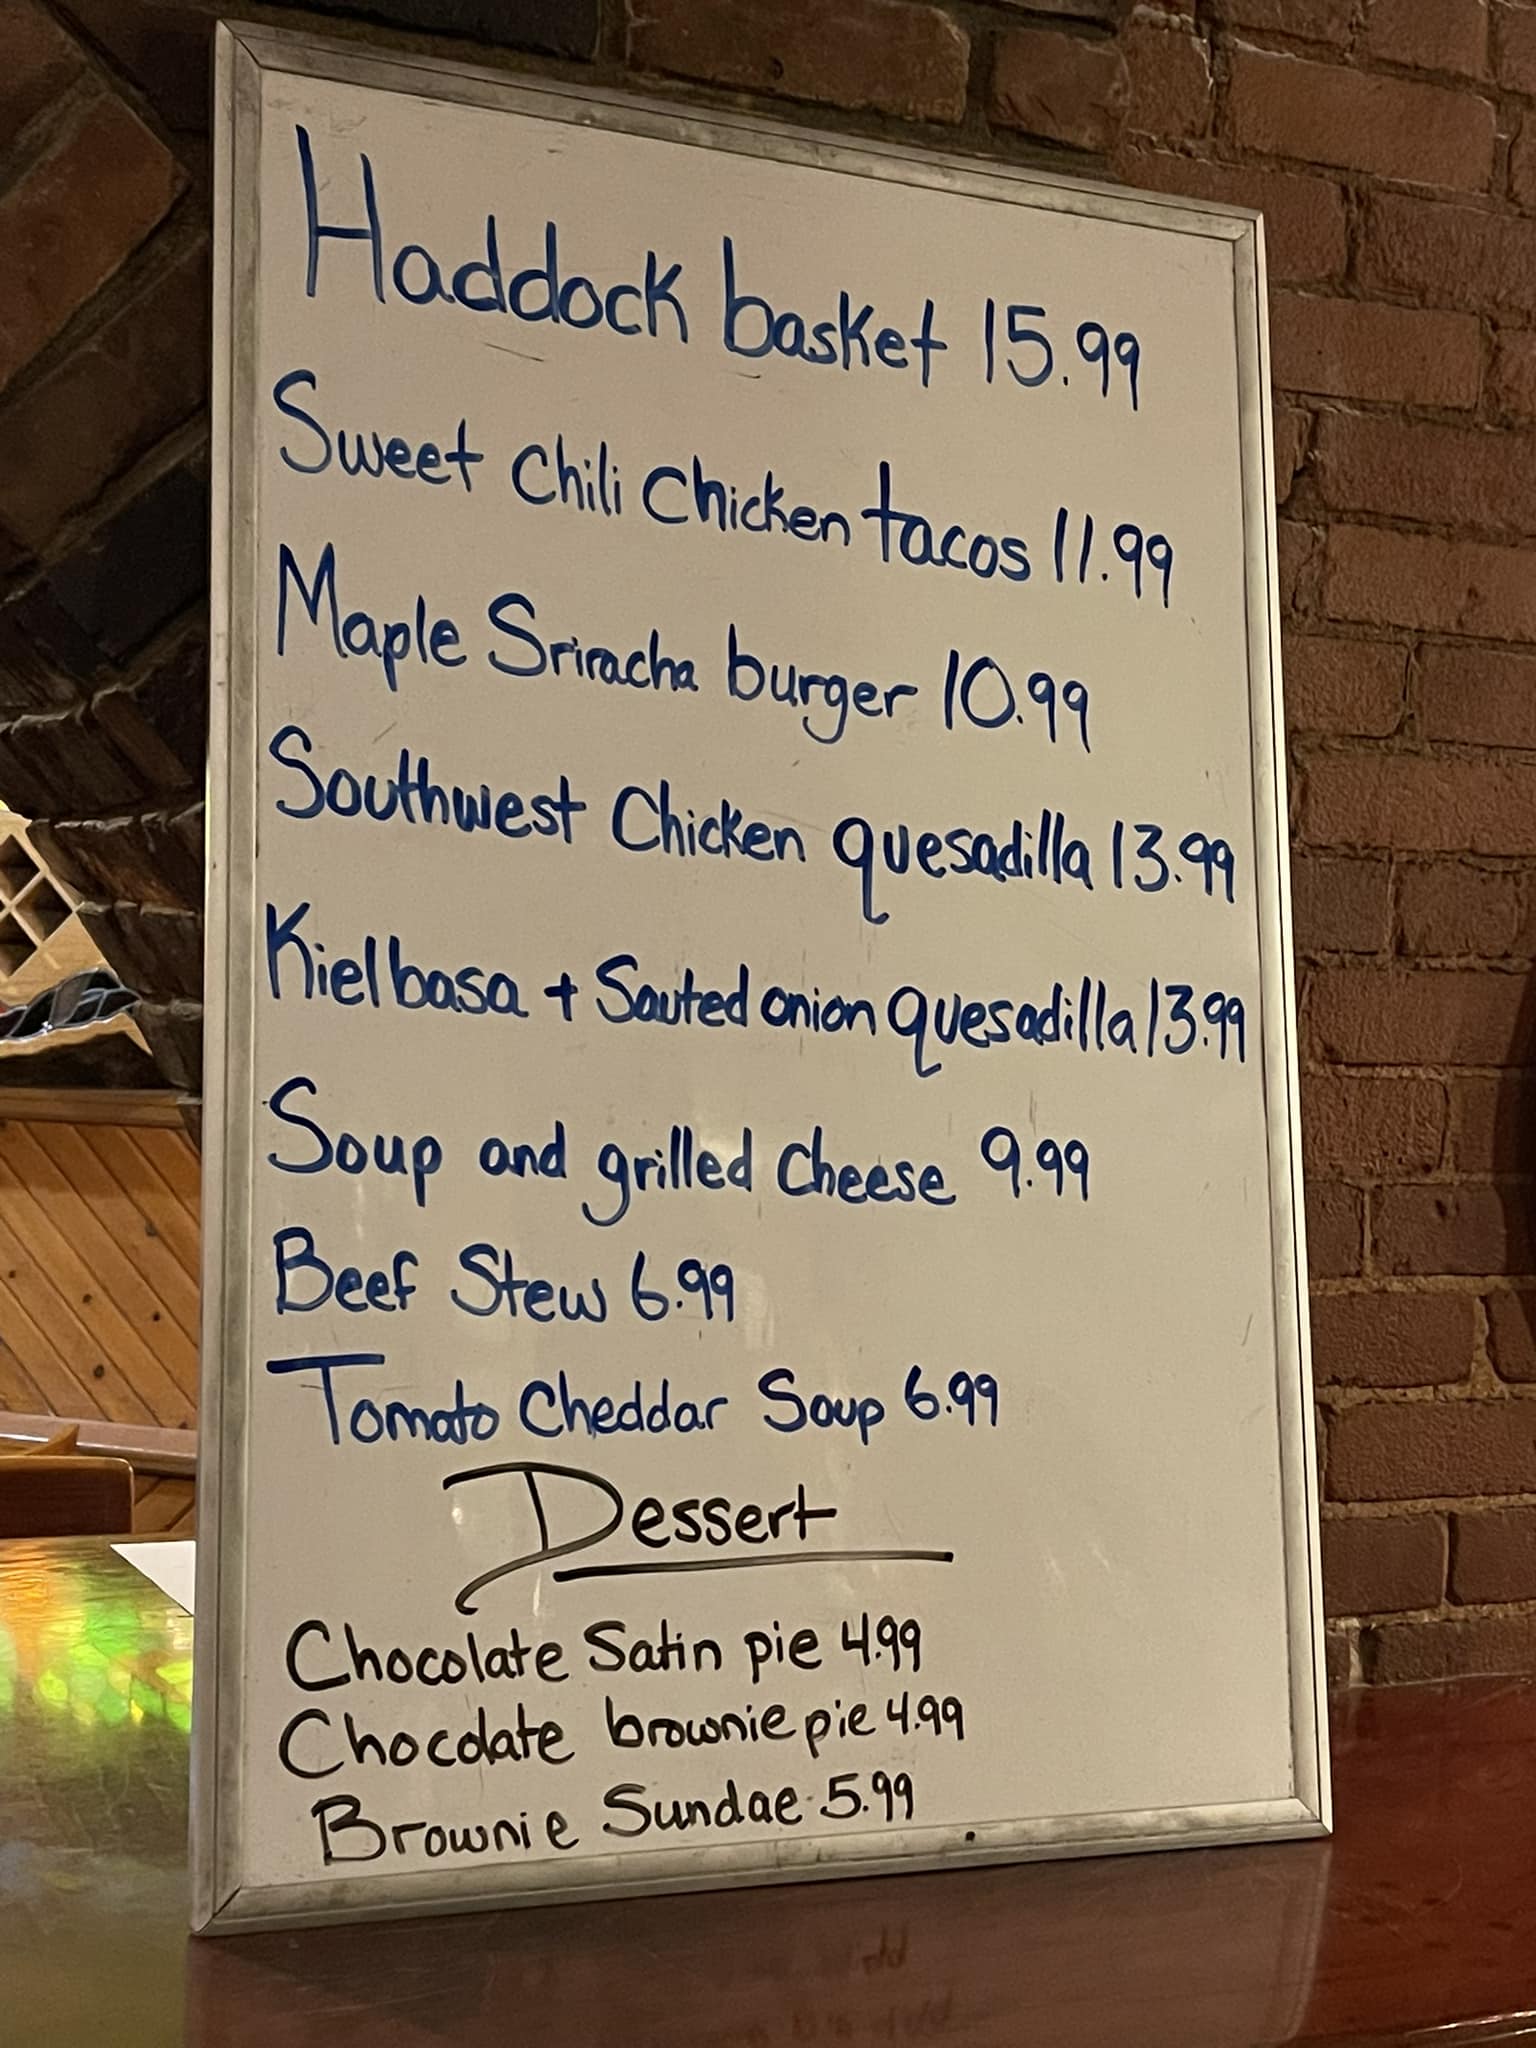 Haddock basket 15.99
Sweet Chili Chicken tacos 11.99
Maple Sriracha burger 10.99
Southwest Chicken quesadilla 13.99
Kielbasa + Sauted onion quesadilla 13.99
Soup and grilled Cheese 9.99
Beef Stew 6.99
Tomato Cheddar Soup 6.99
Dessert
Chocolate Satin pie 4.99
Chocolate brownie pie 4.99
Brownie Sundae 5.99